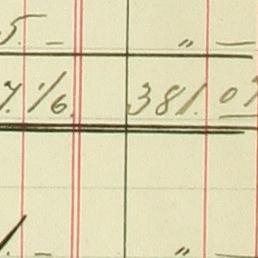 5. — " —
7. 1/6. 381. 07
. — " —